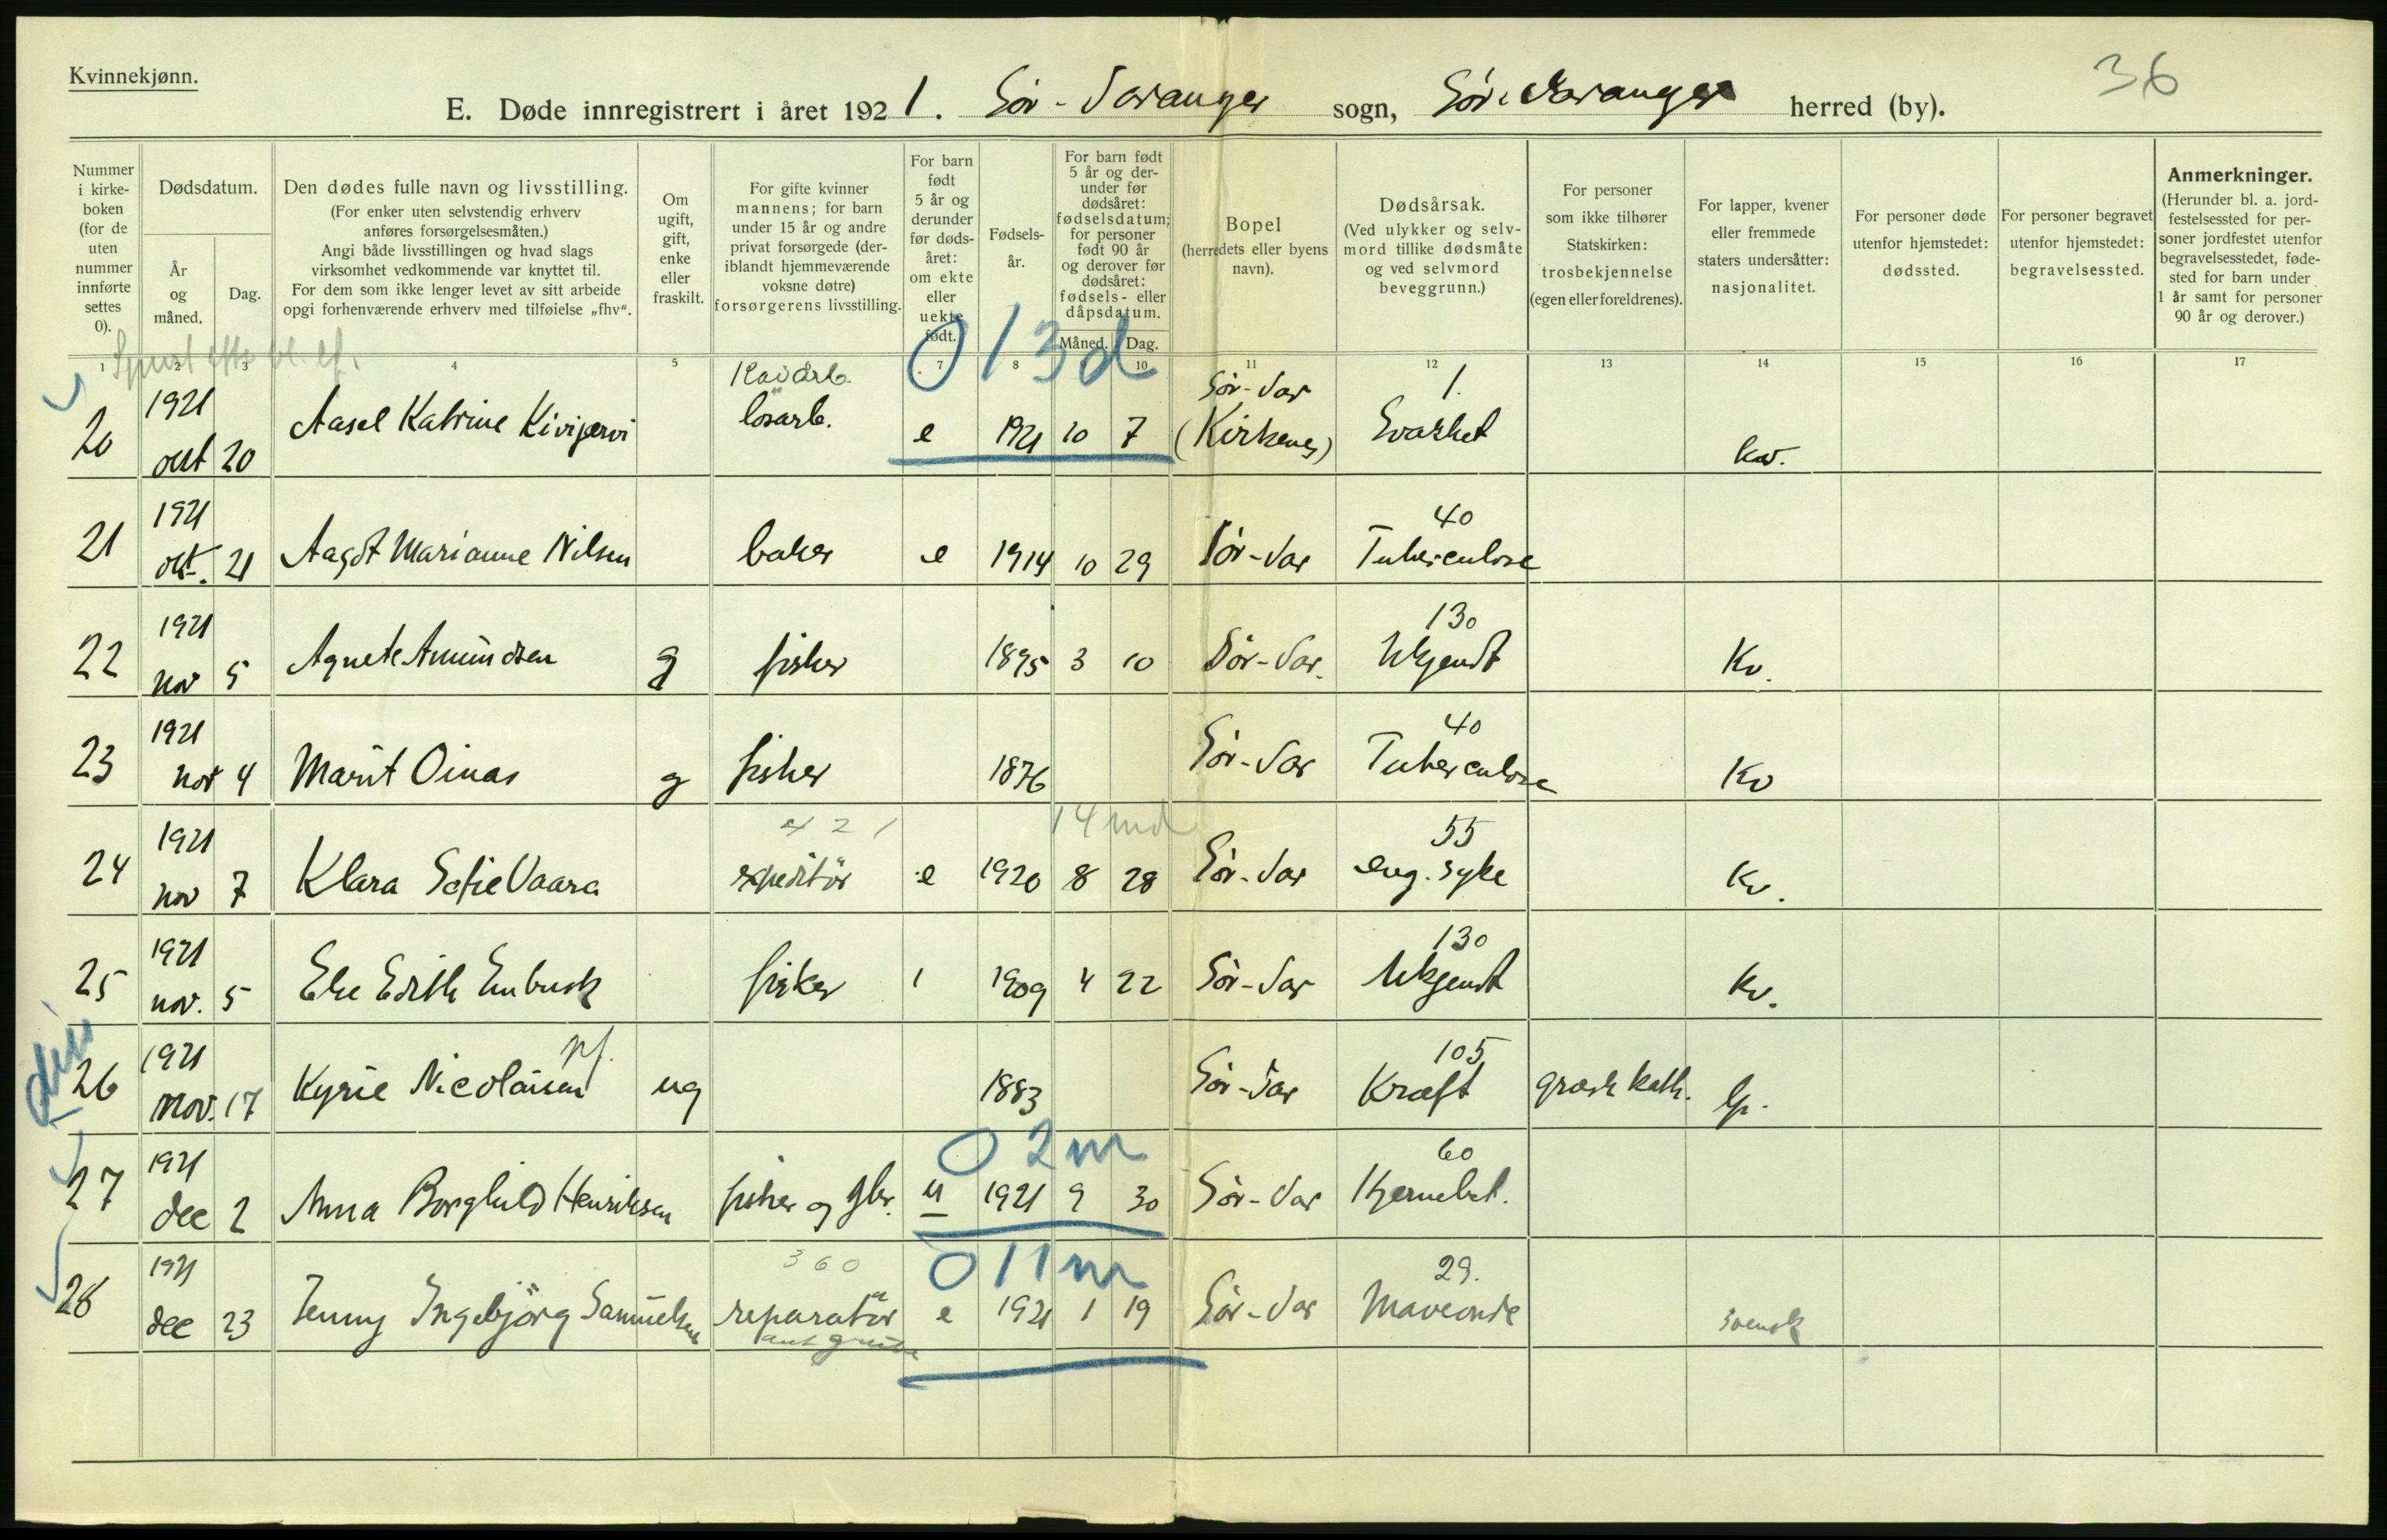 Kvinnekjønn.
36
E. Døde innregistrert i året 1921. Sör-Varanger sogn, Sör-Varanger herred (by).
Nummer i kirke-boken (for de uten nummer innførte settes 0).
Dødsdatum.
År og måned.
Dag.
Den dødes fulle navn og livsstilling.
(For enker uten selvstendig erhverv anføres forsørgelsesmåten.)
Angi både livsstillingen og hvad slags virksomhet vedkommende var knyttet til.
For dem som ikke lenger levet av sitt arbeide opgi forhenværende erhverv med tilføielse „fhv“.
Om ugift, gift, enke eller fraskilt.
For gifte kvinner mannens; for barn under 15 år og andre privat forsørgede (deriblandt hjemmeværende voksne døtre) forsørgerens livsstilling.
For barn født 5 år og derunder før dødsåret: om ekte eller uekte født.
Fødselsår.
For barn født 5 år og derunder før dødsåret: fødselsdatum; for personer født 90 år og derover før dødsåret: fødsels- eller dåpsdatum.
Måned. Dag.
Bopel (herredets eller byens navn).
Dødsårsak.
(Ved ulykker og selvmord tillike dødsmåte og ved selvmord beveggrunn.)
For personer som ikke tilhører Statskirken: trosbekjennelse (egen eller foreldrenes).
For lapper, kvener eller fremmede staters undersåtter: nasjonalitet.
For personer døde utenfor hjemstedet: dødssted.
For personer begravet utenfor hjemstedet: begravelsessted.
Anmerkninger.
(Herunder bl. a. jordfestelsessted for personer jordfestet utenfor begravelsesstedet, fødested for barn under 1 år samt for personer 90 år og derover.)
1 2 3 4 5 7 8 10 11 12 13 14 15 16 17
0 13d
20 1921 okt 20 Aasel Katrine Kivijærvi lösarb. e 1921 10 7 Sör-Var (Kirkenes) 1. Svakhet kv.
21 1921 okt. 21 Aagot Marianne Nilsen baker e 1914 10 29 Sör-Var 40 Tuberculose
22 1921 nov 5 Agnete Amundsen g fisker 1895 3 10 Sör-Var. 130 Ukjendt Kv.
23 1921 nov 4 Marit Oinas g fisker 1876 Sör-Var 40 Tuberculose Kv
421 14 md
24 1921 nov 7 Klara Sofie Vaara expeditör e 1920 8 28 Sör-Var 55 eng. syke Kv.
25 1921 nov. 5 Else Edith Enbusk fisker 1 1909 4 22 Sör-Var 130 Ukjendt Kv.
26 1921 nov. 17 Kyrie Nicolaisen ug 1883 Sör-Var 105 Kræft græsk kath. lp.
0 2m
27 1921 dec 2 Anna Borghild Henriksen fisker og gbr. u 1921 9 30 Sör-Var 60 Hjernebet.
360 0 11m
28 1921 dec 23 Jenny Ingebjörg Samuelsen reparatör e 1921 1 19 Sör-Var 29. Maveonde svensk